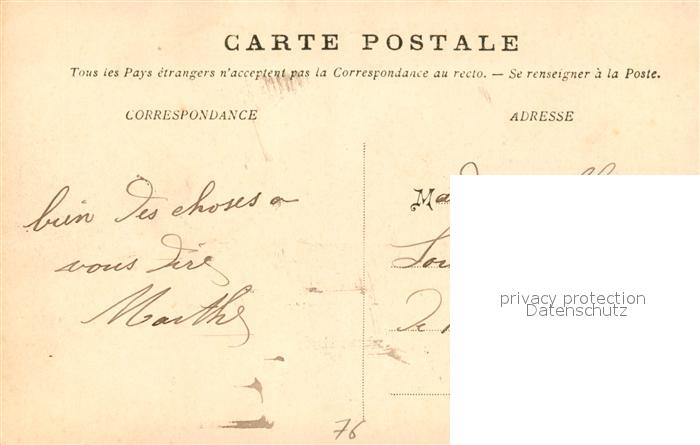 CARTE POSTALE
Tous les Pays étrangers n'acceptent pas la Correspondance au recto. — Se renseigner à la Poste.
CORRESPONDANCE
ADRESSE
bien des choses a
vous dire
Marthe
Mad
Lou
De
privacy protection
Datenschutz
76